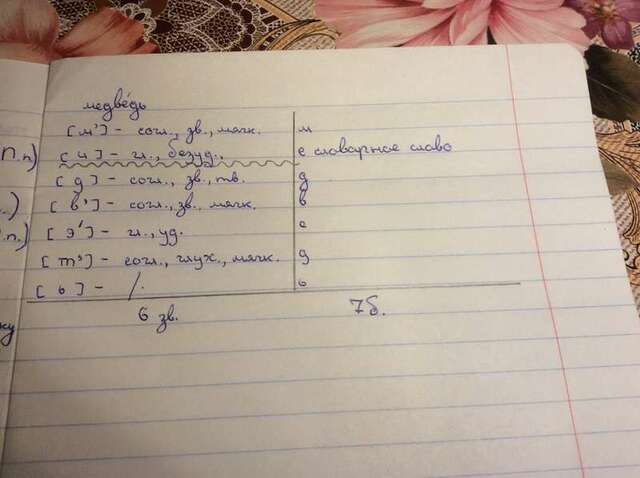 медве́дь
П.п)
[м'] - согл., зв., мягк. м
[и] - гл., безуд., е словарное слово
[д] - согл., зв., тв. д
.)
[в'] - согл., зв. мягк. в
.п.)
[э'] - гл., уд. е
[т'] - согл., глух., мягк. д
[ь] - /. ь
6 зв. 7б.
ку